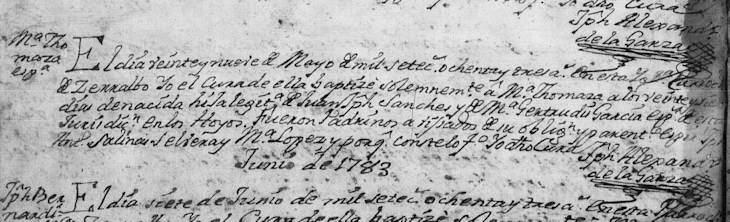 Jph Alexandro
de la Garza
Mª Tho
maza
espª
El dia veinte y nueve de Mayo de mil setecˢ ochenta y tres aˢ. En esta Yglª
de Zerralbo Yo el Cura de ella baptizé solemnemte a Mª Thomaza a los veinte y
dias de nacida hija legitª de Juan Jph Sanches y de Mª Gertrudis Garcia espˢ de esta
Jurisdicn en los Hoyos, fueron Padrinos avisados de su oblign y parentº espl Jph
Antº Salinas Selvera y Mª Lopez y porq. conste lo fº Yo dho Cura
Jph Alexandro
de la Garza
Junio de 1783
Jph Ber
nardi
El dia siete de Junio de mil setecˢ ochenta y tres aˢ. En esta
Yo el Cura de ella baptizé